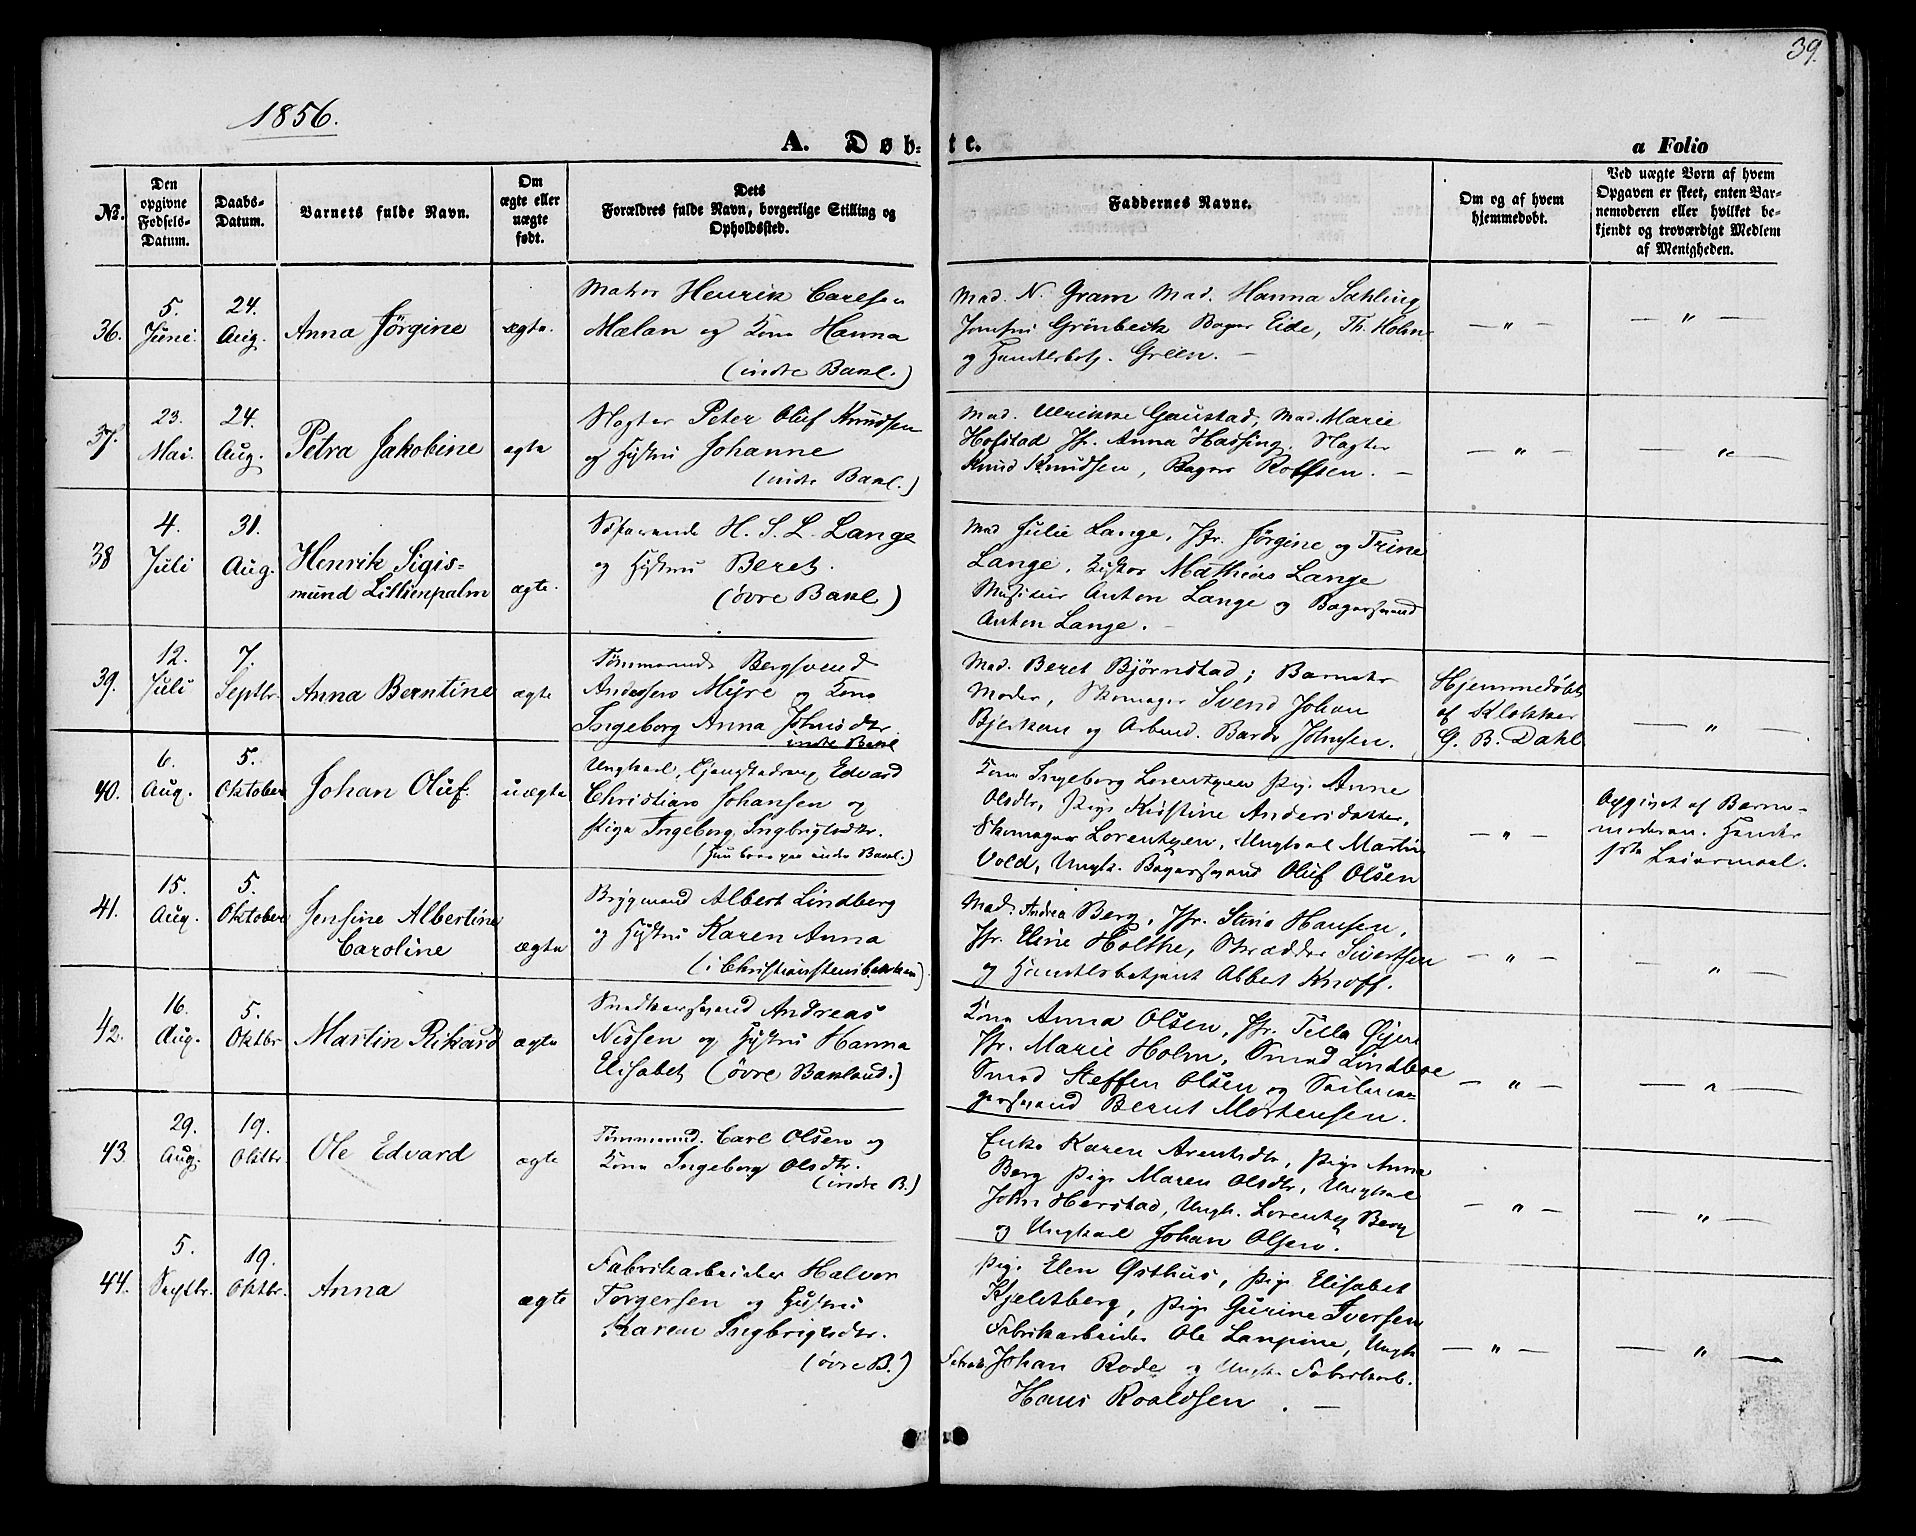 39.
1856.
A. Døb-te.
a Folio
No.
Den opgivne Fødsels-Datum.
Daabs-Datum.
Barnets fulde Navn.
Om ægte eller uægte født.
Dets Forældres fulde Navn, borgerlige Stilling og Opholdssted.
Faddernes Navne.
Om og af hvem hjemmedøbt.
Ved uægte Børn af hvem Opgaven er skeet, enten Barnemoderen eller hvilket bekjendt og troværdigt Medlem af Menigheden.
36.
5. Juni.
24. Aug.
Anna Jörgine
ægte.
Matros Henrik Carlsen
Mælan og Kone Hanna
(indre Bakl.)
Mad. N. Gram Mad. Hanna Sahling
Jomfru Grönbeck Bager Eide, Th. Holm
og Handlsbetj. Green. —
— " —
— " —
37.
23. Mai.
24. Aug.
Petra Jakobine
ægte
Slagter Peter Oluf Knudsen
og Hustru Johanne
(indre Bakl.)
Mad. Ulrikke Gaustad, Mad. Marie
Hofstad Jfr. Anna Hassing. Slagter
Knud Knudsen, Bager Rolfsen. —
— " —
— " —
38
4. Juli
31. Aug.
Henrik Sigis-
mund Lillienpalm
ægte.
Söfarende H. S. L. Lange
og Hustru Beret.
(övre Bakl)
Mad Julie Lange, Jfr. Jörgine og Trine
Lange, Mathias Lange
Musikus Anton Lange og Bagersvend
Anton Lange. —
39.
12. Juli
7. Septbr.
Anna Berntine
ægte
Tömmermd. Bergsvend
Andersen Myre og Kone
Ingeborg Anna Johnsdtr.
indre Bakl
Mad. Beret Björnstad; Barnets
Moder, Skomager Svend Johan
Bjerkan og Arbmd. Bardo Johnsen.
Hjemmedöbt
af Klokker
G. B. Dahl
— " —
40.
6. Aug.
5. Oktober
Johan Oluf.
uægte
Ungkarl, Edvard
Christian Johansen og
Pige Ingeborg Ingbrigtsdtr.
(Hun boer paa indre Bakl.)
Kone Ingeborg Lorentzen Pig. Anne
Olsdtr, Pige Kristine Andersdatter,
Skomager Lorentzen, Ungkarl Martin
Vold, Ungk. Bagersvend Oluf Olsen
— " —
Opgivet af Barne-
moderen. Hendes
1ste Leiermaal.
41.
15. Aug.
5. Oktober
Jensine Albertine
Caroline
ægte
Brygmand Albert Lindberg
og Hustru Karen Anna
(i Christianstensbakken)
Mad. Andrea Berg, Jfr. Stine Hansen,
Jfr. Eline Holthe, Skrædder Sivertsen
og Handelsbetjent Albert Knoff.
— " —
— " —
42.
16. Aug.
5. Oktbr
Martin Rikard
ægte
Snedkersvend Andreas
Nissen og Hustru Hanna
Elisabet (övre Bakland.)
Kone Anna Olsen, Jfr. Tilla Öyen
Jfr. Marie Holm, Smed Lindboe
Smed Steffen Olsen og Seilma-
gersvend Bernt Mortensen.
— " —
— " —
43
29. Aug.
19. Oktbr.
Ole Edvard
ægte
Tömmermd. Carl Olsen og
Kone Ingeborg Olsdtr.
(indre B.)
Enke Karen Arentsdtr, Pige Anna
Berg Pige Maren Olsdtr, Ungkarl
John Herstad, Ungk. Lorentz Berg
og Ungkarl Johan Olsen.
— " —
— " —
44.
5. Septbr.
19. Oktbr.
Anna
ægte
Fabrikarbeider Halvor
Torgersen og Hustru
Karen Ingbrigtsdtr.
(övre B.)
Pige Elen Östhus, Pige Elisabet
Kjeldsberg, Pige Gurine Iversen
Fabrikarbeider Ole Lanpine, Ungk.
Fabrik Johan Rode og Ungk. Fabrikarb.
Hans Roaldsen. —
— " —
— " —